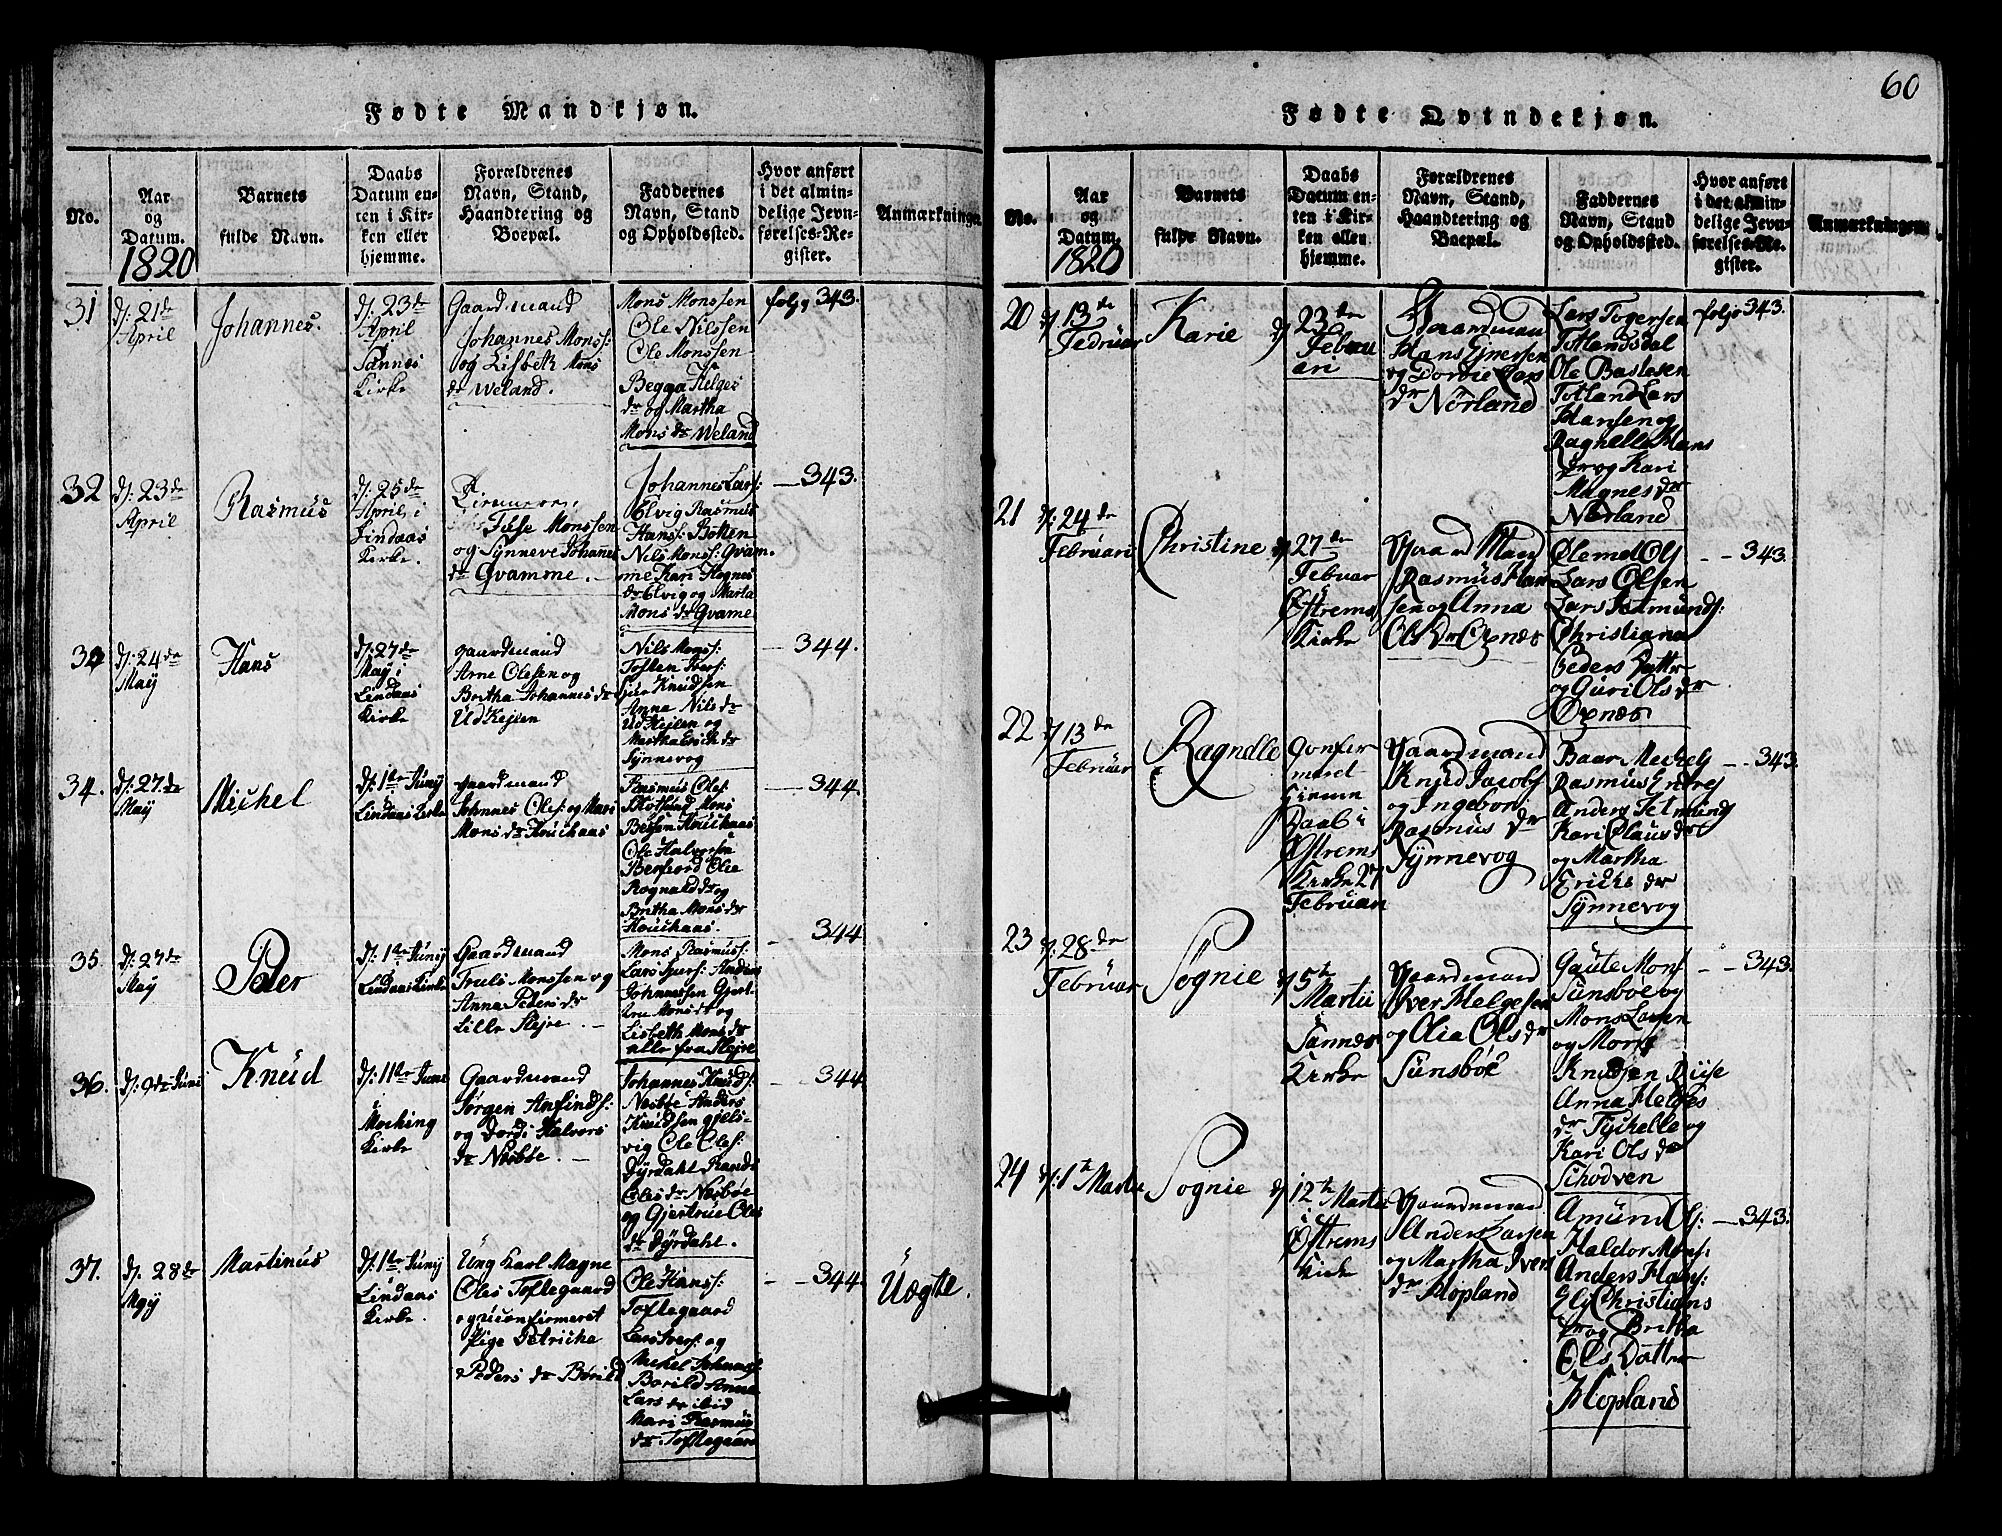 60
Fødte Mandkjøn.
No.
Aar
og
Datum.
1820
Barnets
fulde Navn.
Daabs
Datum en-
ten i Kir-
ken eller
hjemme.
Forældrenes
Navn, Stand,
Haandtering og
Boepæl.
Faddernes
Navn, Stand
og Opholdssted.
Hvor anført
i det almin-
delige Jevn-
førelses-Re-
gister.
Anmærkninger
31
d: 21de
April
Johannes.
d: 23de
April
Sannes
Kirke
Gaardmand
Johannes Monss:
og Lisbeth Mons
dr Weland.
Mons Monssen
Ole Nilssen
Ole Monssen
Begga Helges
dr og Martha
Mons dr Weland
foljo 343.
32
d: 23de
April
Rasmus
d: 25de
April, i
Lindaas
Kirke.
Tuse Monssen
og Synneve Johanes
dr Qvamme.
Johannes Lars:
Elvig Rasmus
Hans: Botten
Nils Mons: Qvam
me Kari Hognes
dr Elvig og Marta
Mons dr Qvame
343.
d: 24de
May
Hans
d: 27de
May i
Lindaas
Kirke
gaardmand
Arne Olesen og
Britha Johannes dr
Ud Kejlen
Nils Mons:
Toften Iver:
Siur Knudsen
Anna Nils dr
Ud Kejlen og
Martha Erich dr
Synnevog
344.
34.
d: 27de
May
Michel
d: 1te Juny
Lindaas Kirke
gaardmand
Johannes Oles: og Mari
Mons dr Houchaas
Rasmus Oles:
Mons
Bessen Houchaas
Ole Halvorsen
Ole
Rognald dr og
Britha Mons dr
Houchaas.
344.
35.
d: 27de
May
Peder
d: 1te Juny
Lindaas Kirke
Gaardmand
Truls Monssen og
Anna Peders dr
Lille Slejre.
Mons Rasmus:
Lars Iver: Anders
Johannessen Gjert
Mons dr og
Lisbeth Mons dr
alle fra Slejre
344
36.
d: 9de Juni
Knud
d: 11te Juni
Mocking
Kirke
Gaardmand
Jørgen Anfinds:
og Dordi Halvors
dr Nesbøe.
Johannes Knuds:
Nesbøe Anders
Knudsen gjels-
vig Ole Oles:
Dyrdahl Randi
Oles dr Nesbøe
og Gjertrue Oles
dr Dyrdahl.
344
37.
d: 28de
May
Martinus
d: 1te Juny
Lindaas
Kirke.
Ung Karl Magne
Oles Toftegaard
og uconfirmeret
Pige Petricha
Peders dr Børild
Ole Hans:
Toftegaard
Lars Ivers: og
Michel Johannes:
Borild Anna
Lars dr ibid
Mari Rasmus
dr. Toftegaard
344.
Uægte.
Fødte Qvindekjøn.
No.
Aar
og
Datum.
1820
Barnets
fulde Navn.
Daabs
Datum en-
ten i Kir-
ken eller
hjemme.
Forældrenes
Navn, Stand,
Haandtering og
Boepæl.
Faddernes
Navn, Stand
og Opholdssted.
Hvor anført
i det almin-
delige Jevn-
førelses-Re-
gister.
Anmærkninger
20
d 13de
Februar
Karie
d 23de
Febru
ari
Gaardman
Hans Ejnersen
og Dordie Lars
dr Nørland
Lars Togersen
Totlandsdal
Ole Bastesen
Totland Lars
Hansen og
Ragnelle Hans
dr og Kari
Magnes dr
Nørland
foljo 343.
21
d: 24de
Februari
Christine
d 27de
Februar
Østrems
Kirke
Gaard Mand
Rasmus Han
sen og Anna
Ols Dr Oxnæs
Lars Olsen
Lars Setmunds:
Christiana
Peders Datter
og Guri Ols dr
Oxnæs
343.
22
d 13de
Februar
Ragnelle
Confer
meret
Hiemme
Daab i
Østrems
Kirke 27
Februari
Gaardmand
Knud Jacobs
og Ingebori
Rasmus dr
Synnevog
Baar Michels
Rasmus Endres
Anders Setmund
Kari Claus dr
og Martha
Erichs dr
Synnevog
343.
23
d: 28de
Februar
Sognie
d 5te
Martii
Sannes
Kirke
Gaardmand
Iver Helgesen
og Olia Ols dr
Sunsbøe
Gaute Mons
Sunsbøe og
Mons Larsen
og Mons
Knudsen Riise
Anna Helges
dr Tychelle og
Kari Ols dr
Schodven
343.
24
d: 1te Martii
Sognie
d 12te Martii
i
Østrems
Kirke
Gaardmand
Anders Larsen
og Martha Ivers
dr Hopland
Amund Ols:
Haldor Mons:
Anders Hans:
Eli Christians
dr og Britha
Ols Datter
Hopland
343.